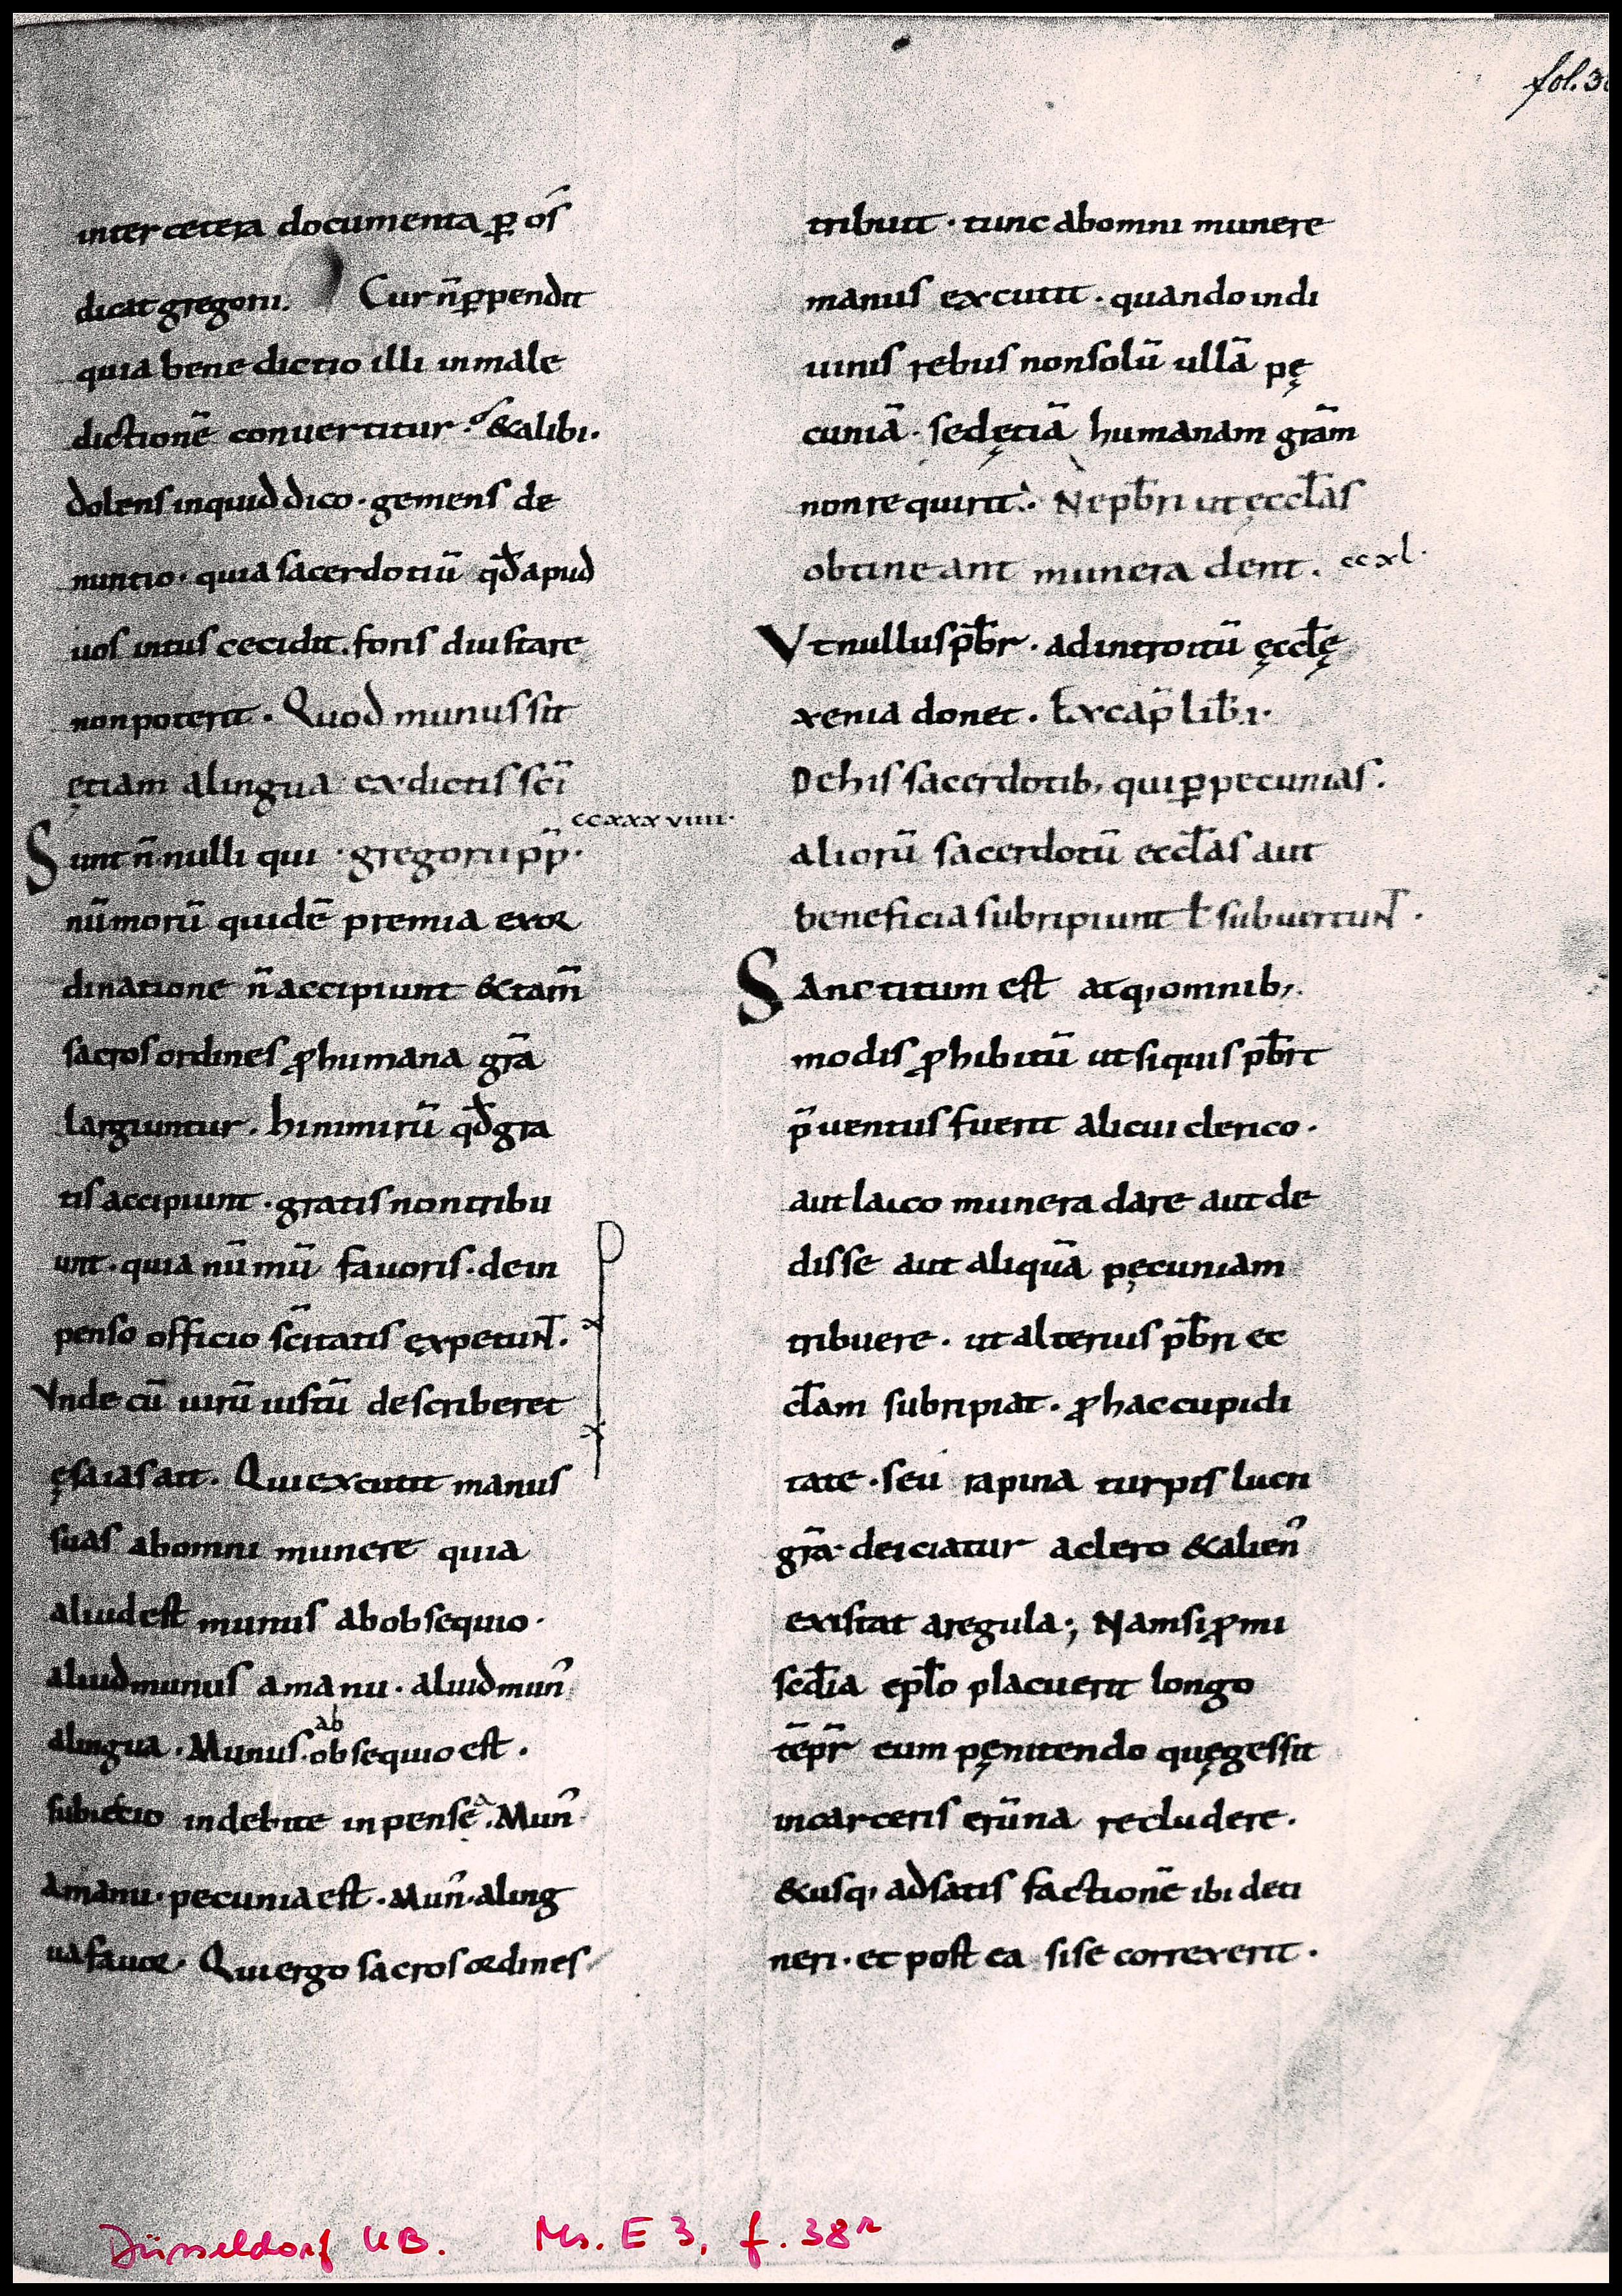 fol. 3
inter cetera documenta ꝑ os̄
dicat gregorii. Cur n̄ ꝑpendit
quia bene dictio illi in male
dictionē conuertitur. & alibi.
dolens inquid dico · gemens de
nuntio · quia sacerdotiū qd̄ apud
uos intus cecidit. foris diu stare
non poterit. Quod munus sit
ętiam a lingua ex dictis sc̄i
ccxxxviiii.
Sunt n̄ nulli qui · gregorii pp̄ ·
nūmorū quidē premia ex or
dinatione n̄ accipiunt & tam̄
sacros ordines ꝓ humana gr̄a
largiuntur. hi nimirū qd̄ gra
tis accipiunt · gratis non tribu
unt · quia nūmū fauoris · de in
penso officio sc̄itatis ęxpetunt.
Vnde cū uirū iustū describeret
ęsaias ait. Qui excutit manus
suas ab omni munere quia
aliud est munus ab obsequio ·
aliud munus a manu · aliud mun᾽
a lingua. Munus ab obsequio est.
subiectio indebite inpensę. Mun᾽
a manu · pecunia est. Mun᾽ a ling
ua fauor. Qui ergo sacros ordines
tribuit · tunc ab omni munere
manus excutit. quando in di
uinis rebus non solū ullā pę
cuniā · sed ętiā humanam gr̄am
non requirit. Ne pb̄ri ut ęccl̄as
obtineant munera dent. ccxl.
Vt nullus pb̄r · ad introitū ęccl̄ę
xenia donet. Ex cap̄ lib̄. 1.
De his sacerdotib; qui ꝑ pecunias.
aliorū sacerdotū eccl̄as aut
beneficia subripiunt ł subuertunt.
Sanctitum est atq; omnib;
modis ꝓhibitū ut si quis pb̄rt
p̄uentus fuerit alicui clerico ·
aut laico munera dare aut de
disse aut aliquā pęcuniam
tribuere · ut alterius pb̄ri ec
cl̄am subripiat. ꝓ hac cupidi
tate · seu rapina turpis lucri
gr̄a deiciatur a clero & alien᾽
existat a regula; Nam si ꝓmi
scd̄ia epl̄o placuerit longo
tēpr̄ eum pęnitendo quę gessit
in carceris erūna recludere.
& usq; ad satis factionē ibi deti
neri · et post ea si se correxerit.
Düsseldorf UB. Ms. E 3, f. 38ʳ